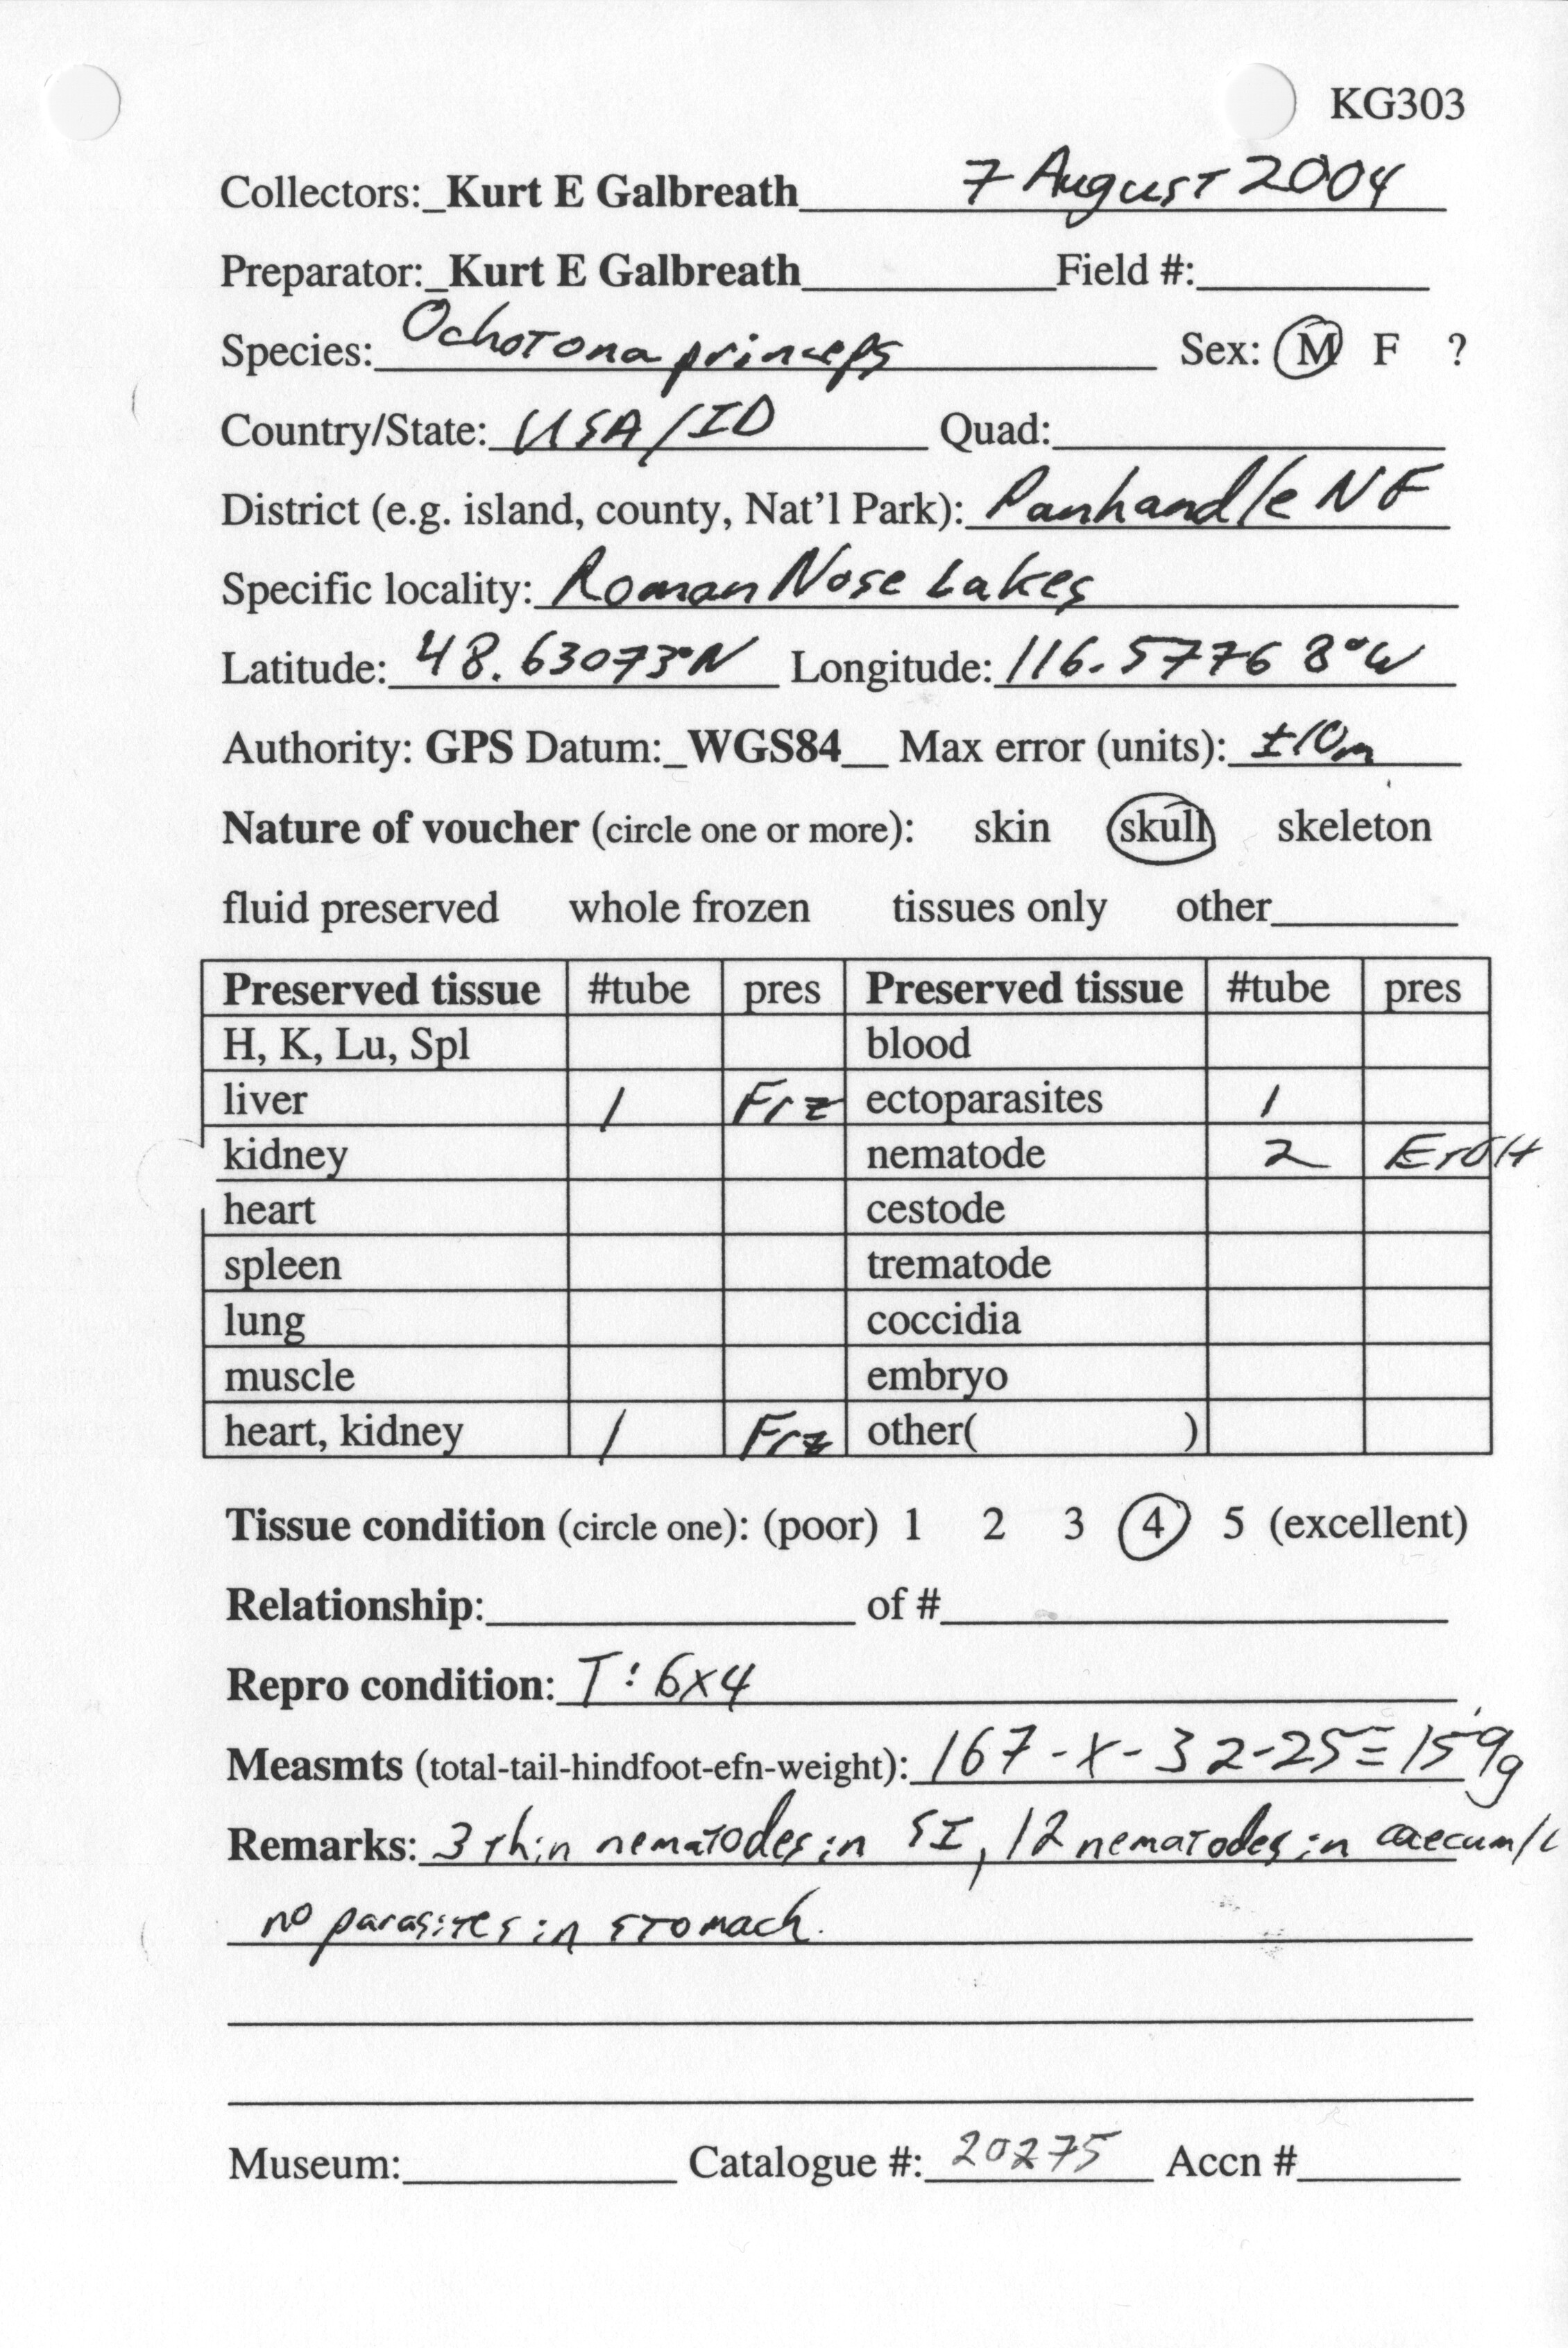 KG303
Collectors: Kurt E Galbreath 7 August 2004
Preparator: Kurt E Galbreath Field #:
Species: Ochotona princeps Sex: M F ?
Country/State: USA/ID Quad:
District (e.g. island, county, Nat'l Park): Panhandle NF
Specific locality: Roman Nose Lakes
Latitude: 48.63073°N Longitude: 116.57768°W
Authority: GPS Datum: WGS84 Max error (units): ±10m
Nature of voucher (circle one or more): skin skull skeleton
fluid preserved whole frozen tissues only other
Preserved tissue #tube pres Preserved tissue #tube pres
H, K, Lu, Spl blood
liver 1 Frz ectoparasites 1
kidney nematode 2 EtOH
heart cestode
spleen trematode
lung coccidia
muscle embryo
heart, kidney 1 Frz other( )
Tissue condition (circle one): (poor) 1 2 3 4 5 (excellent)
Relationship: of #
Repro condition: T: 6x4
Measmts (total-tail-hindfoot-efn-weight): 167-X-32-25≡159g
Remarks: 3 thin nematodes in SI, 12 nematodes in caecum/L
no parasites in stomach.
Museum: Catalogue #: 20275 Accn #